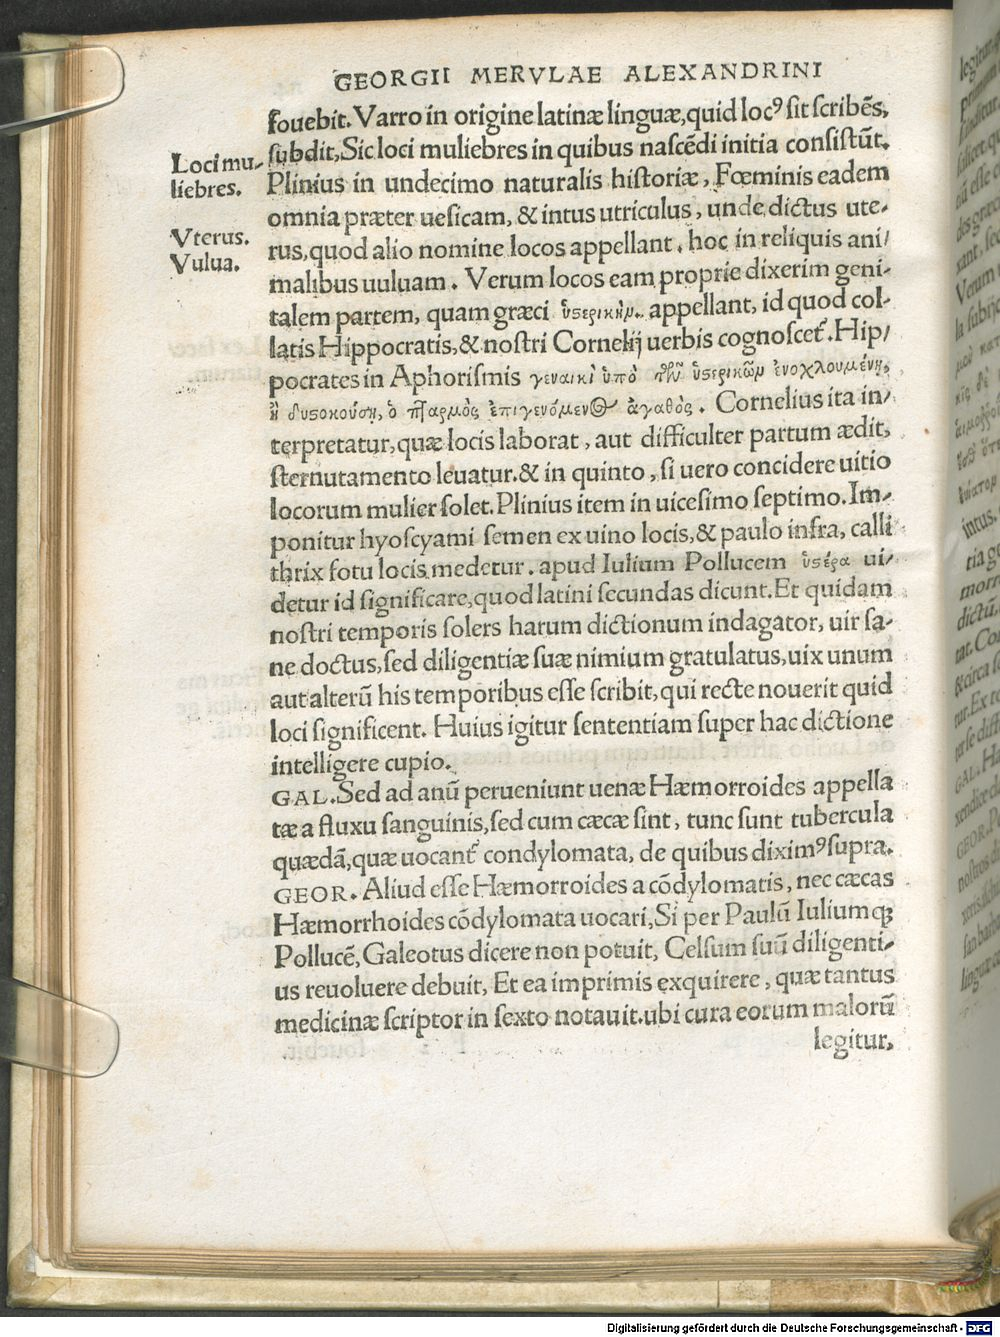 GEORGII MERVLAE ALEXANDRINI
fouebit. Varro in origine latinæ linguæ, quid locꝰ sit scribẽs,
subdit, Sic loci muliebres in quibus nascẽdi initia consistũt.
Loci mu-
liebres.
Plinius in undecimo naturalis historiæ, Fœminis eadem
omnia præter uesicam, & intus utriculus, unde dictus ute-
Vterus.
Vulua.
rus, quod alio nomine locos appellant, hoc in reliquis ani/
malibus uuluam. Verum locos eam proprie dixerim geni-
talem partem, quam græci ὑστερικὴμ. appellant, id quod col-
latis Hippocratis, & nostri Cornelij uerbis cognoscet᷑. Hip/
pocrates in Aphorismis γεναικὶ ὑπὸ τῶν ὑστερικῶμ ἐνοχλουμένῃ,
ἢ δυστοκούσῃ, ὁ πταρμὸς ἐπιγενόμενος ἀγαθὸς. Cornelius ita in/
terpretatur, quæ locis laborat, aut difficulter partum ædit,
sternutamento leuatur. & in quinto, si uero concidere uitio
locorum mulier solet. Plinius item in uicesimo septimo. Im-
ponitur hyoscyami semen ex uino locis, & paulo infra, calli
thrix fotu locis medetur. apud Iulium Pollucem ὑστέρα ui-
detur id significare, quod latini secundas dicunt. Et quidam
nostri temporis solers harum dictionum indagator, uir sa-
ne doctus, sed diligentiæ suæ nimium gratulatus, uix unum
aut alterũ his temporibus esse scribit, qui recte nouerit quid
loci significent. Huius igitur sententiam super hac dictione
intelligere cupio.
GAL. Sed ad anũ perueniunt uenæ Hæmorroides appella
tæ a fluxu sanguinis, sed cum cæcæ sint, tunc sunt tubercula
quædã, quæ uocant᷑ condylomata, de quibus diximꝰ supra.
GEOR. Aliud esse Hæmorroides a cõdylomatis, nec cæcas
Hæmorrhoides cõdylomata uocari, Si per Paulũ Iuliumq;
Pollucẽ, Galeotus dicere non potuit, Celsum suũ diligenti-
us reuoluere debuit, Et ea imprimis exquirere, quæ tantus
medicinæ scriptor in sexto notauit. ubi cura eorum malorũ
legitur,
Digitalisierung gefördert durch die Deutsche Forschungsgemeinschaft - DFG